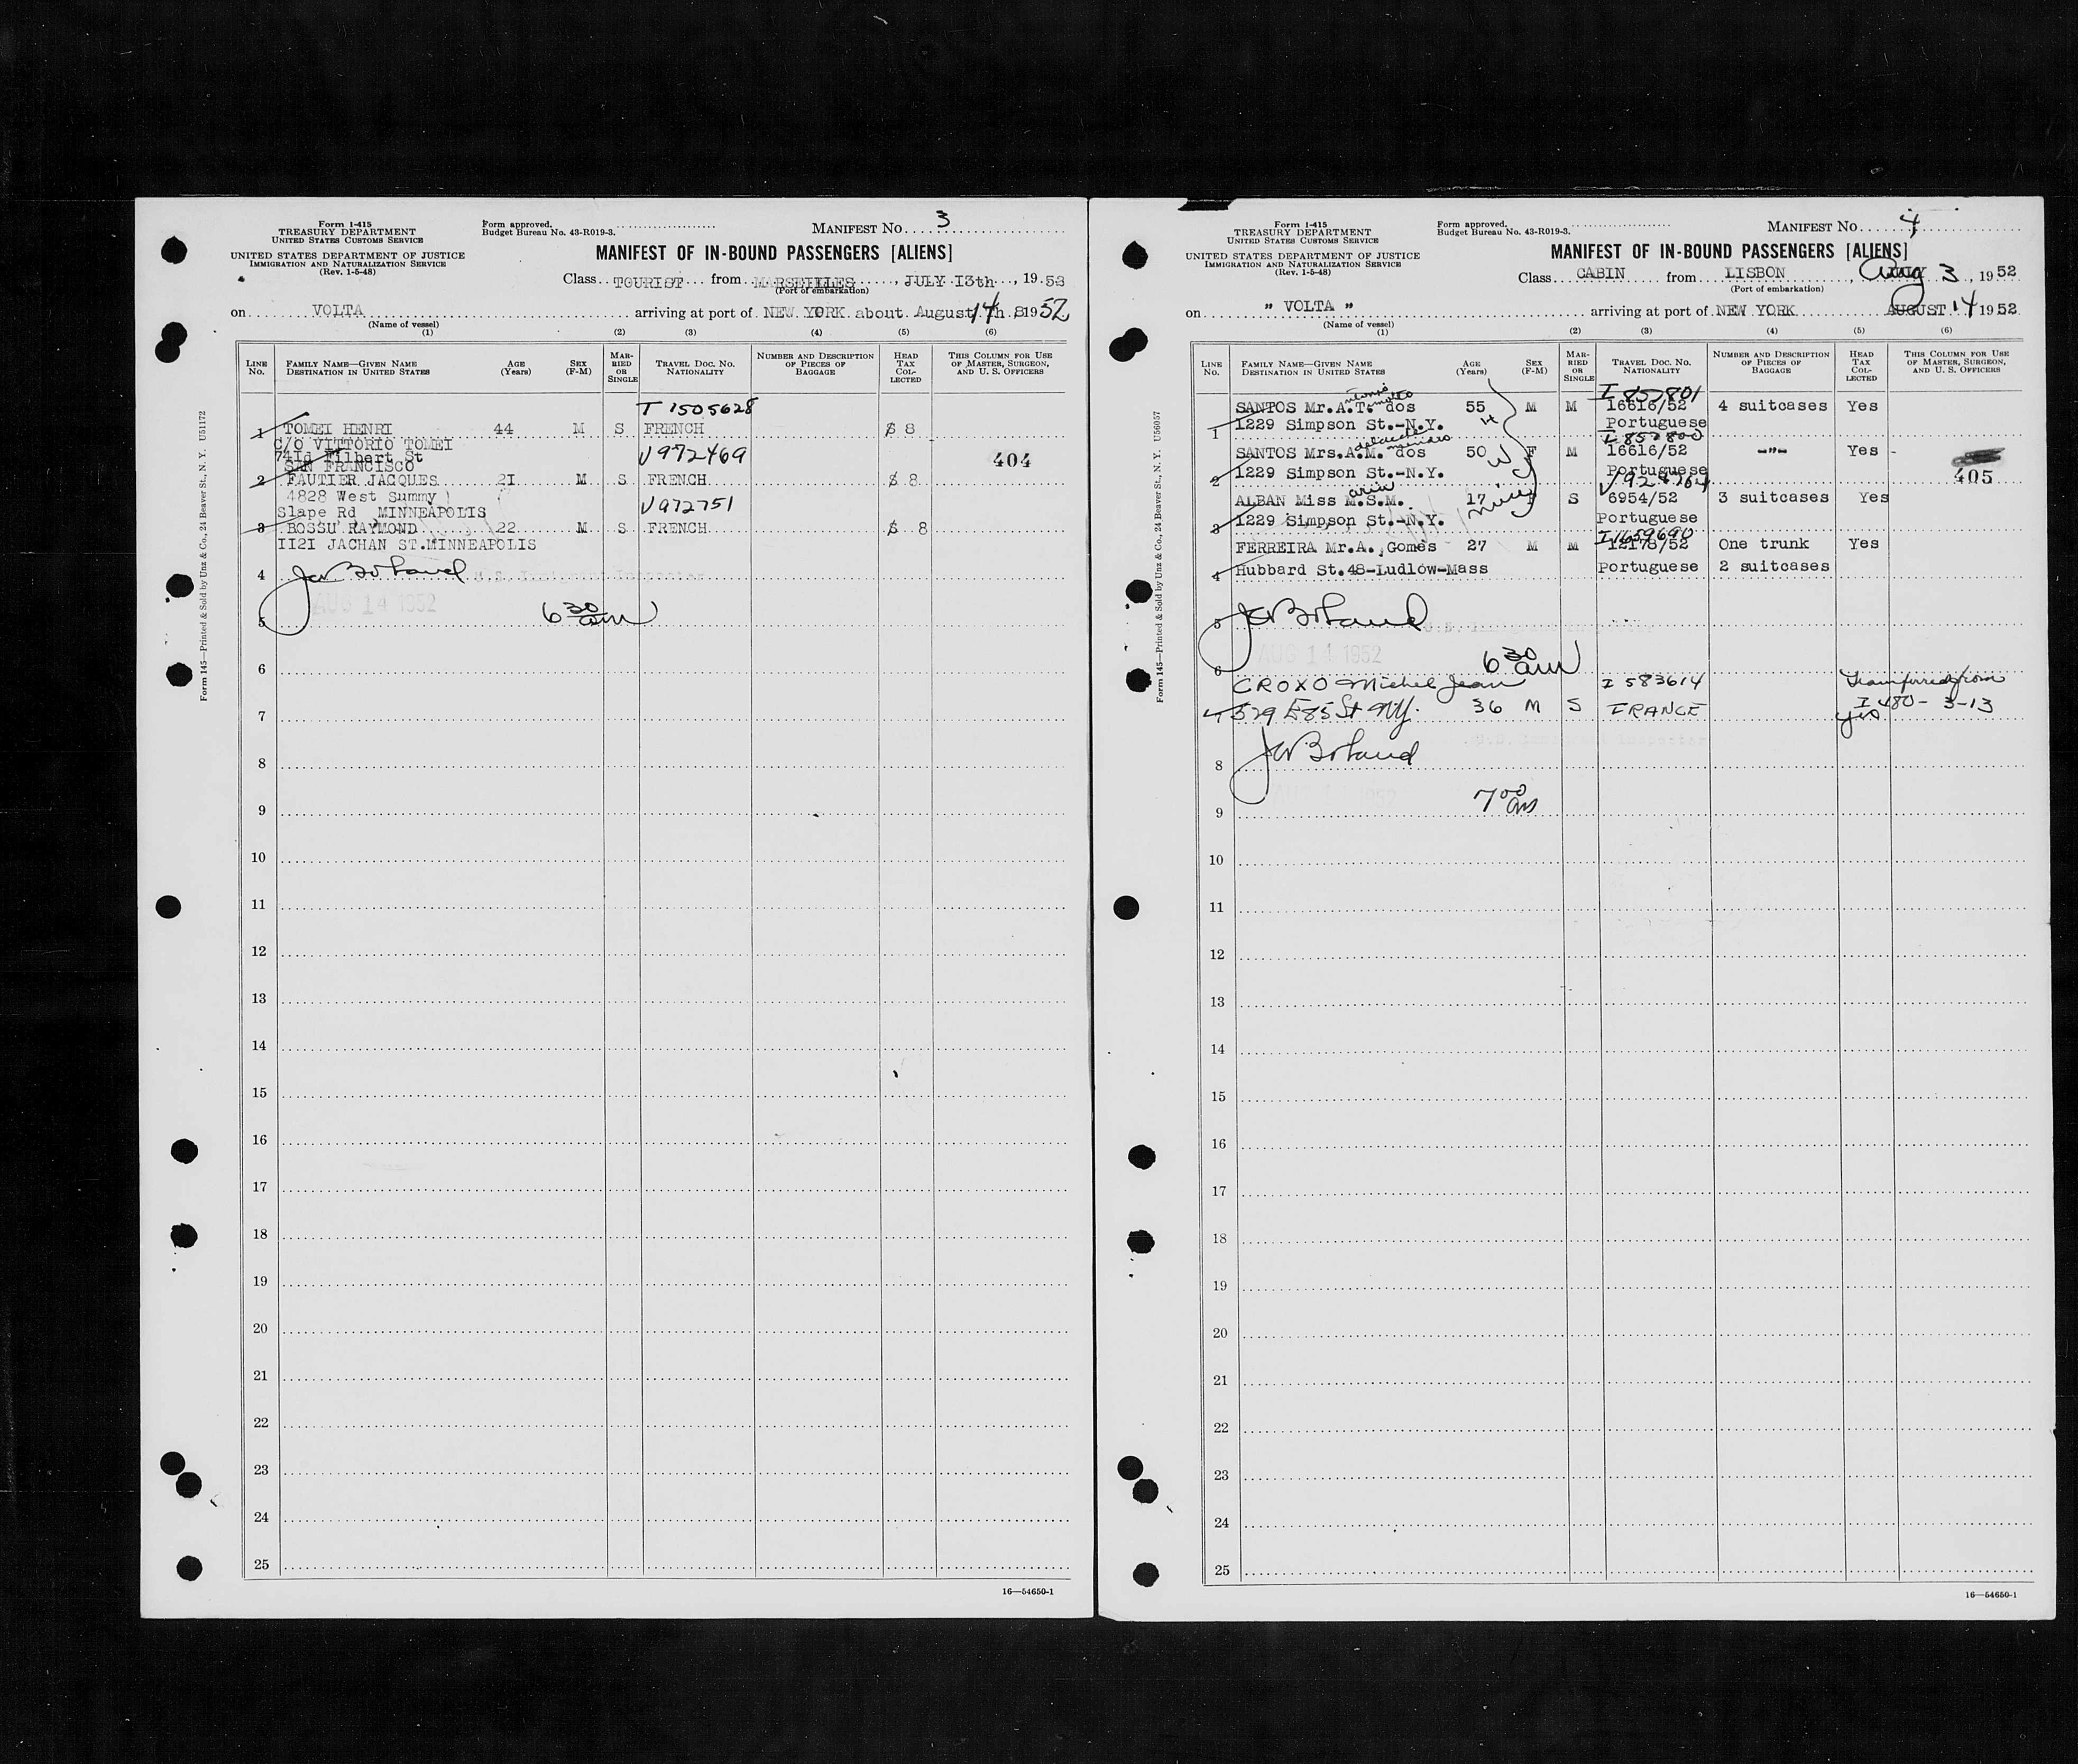 Form I-415
TREASURY DEPARTMENT
UNITED STATES CUSTOMS SERVICE
UNITED STATES DEPARTMENT OF JUSTICE
IMMIGRATION AND NATURALIZATION SERVICE
(Rev. 1-5-48)
Form approved.
Budget Bureau No. 43-R019-3.
MANIFEST No. 3
MANIFEST OF IN-BOUND PASSENGERS [ALIENS]
Class TOURIST from MARSEILLES, JULY I3th, 19
(Port of embarkation)
on VOLTA arriving at port of NEW YORK about August 14th 1952
(Name of vessel)
(1) (2) (3) (4) (5) (6)
LINE No. FAMILY NAME—GIVEN NAME DESTINATION IN UNITED STATES AGE (Years) SEX (F-M) MARRIED OR SINGLE TRAVEL DOC. NO. NATIONALITY NUMBER AND DESCRIPTION OF PIECES OF BAGGAGE HEAD TAX COLLECTED THIS COLUMN FOR USE OF MASTER, SURGEON, AND U. S. OFFICERS
T 1505628
1 TOMEI HENRI 44 M S FRENCH $ 8
C/O VITTORIO TOMEI
Filbert St V972469 404
SAN FRANCISCO
2 FAUTIER JACQUES 2I M S FRENCH $ 8
4828 West Summy
Slape Rd MINNEAPOLIS V972751
3 BOSSU RAYMOND 22 M S FRENCH $ 8
II2I JACHAN ST.MINNEAPOLIS
4 U.S. Immigrant Inspector
AUG 14 1952 6 30 am
5
6
7
8
9
10
11
12
13
14
15
16
17
18
19
20
21
22
23
24
25
16—54650-1
Form 145—Printed & Sold by Unz & Co., 24 Beaver St., N. Y. U51172
Form I-415
TREASURY DEPARTMENT
UNITED STATES CUSTOMS SERVICE
UNITED STATES DEPARTMENT OF JUSTICE
IMMIGRATION AND NATURALIZATION SERVICE
(Rev. 1-5-48)
Form approved.
Budget Bureau No. 43-R019-3.
MANIFEST No. 4
MANIFEST OF IN-BOUND PASSENGERS [ALIENS]
Class CABIN from LISBON, Aug 3, 1952
(Port of embarkation)
on " VOLTA " arriving at port of NEW YORK AUGUST 14 1952
(Name of vessel)
(1) (2) (3) (4) (5) (6)
LINE No. FAMILY NAME—GIVEN NAME DESTINATION IN UNITED STATES AGE (Years) SEX (F-M) MARRIED OR SINGLE TRAVEL DOC. NO. NATIONALITY NUMBER AND DESCRIPTION OF PIECES OF BAGGAGE HEAD TAX COLLECTED THIS COLUMN FOR USE OF MASTER, SURGEON, AND U. S. OFFICERS
I 857801
SANTOS Mr.A.T. dos 55 M M 16616/52 4 suitcases Yes
1 1229 Simpson St.-N.Y. Portuguese
I 857800
SANTOS Mrs.A.M. dos 50 F M 16616/52 -"- Yes -
2 1229 Simpson St.-N.Y. Portuguese 405
ALBAN Miss M.S.M. 17 F S 6954/52 3 suitcases Yes
3 1229 Simpson St.-N.Y. Portuguese
I1659690
FERREIRA Mr.A. Gomes 27 M M 12178/52 One trunk Yes
4 Hubbard St.48-Ludlow-Mass Portuguese 2 suitcases
5
AUG 14 1952
6 6 30 am
CROXO Michel Jean I 583614 Transferred from
7 529 E 85 St NY. 36 M S FRANCE yes I 480- 3-13
8
7 00 am
9
10
11
12
13
14
15
16
17
18
19
20
21
22
23
24
25
16—54650-1
Form 145—Printed & Sold by Unz & Co., 24 Beaver St., N. Y. U56057